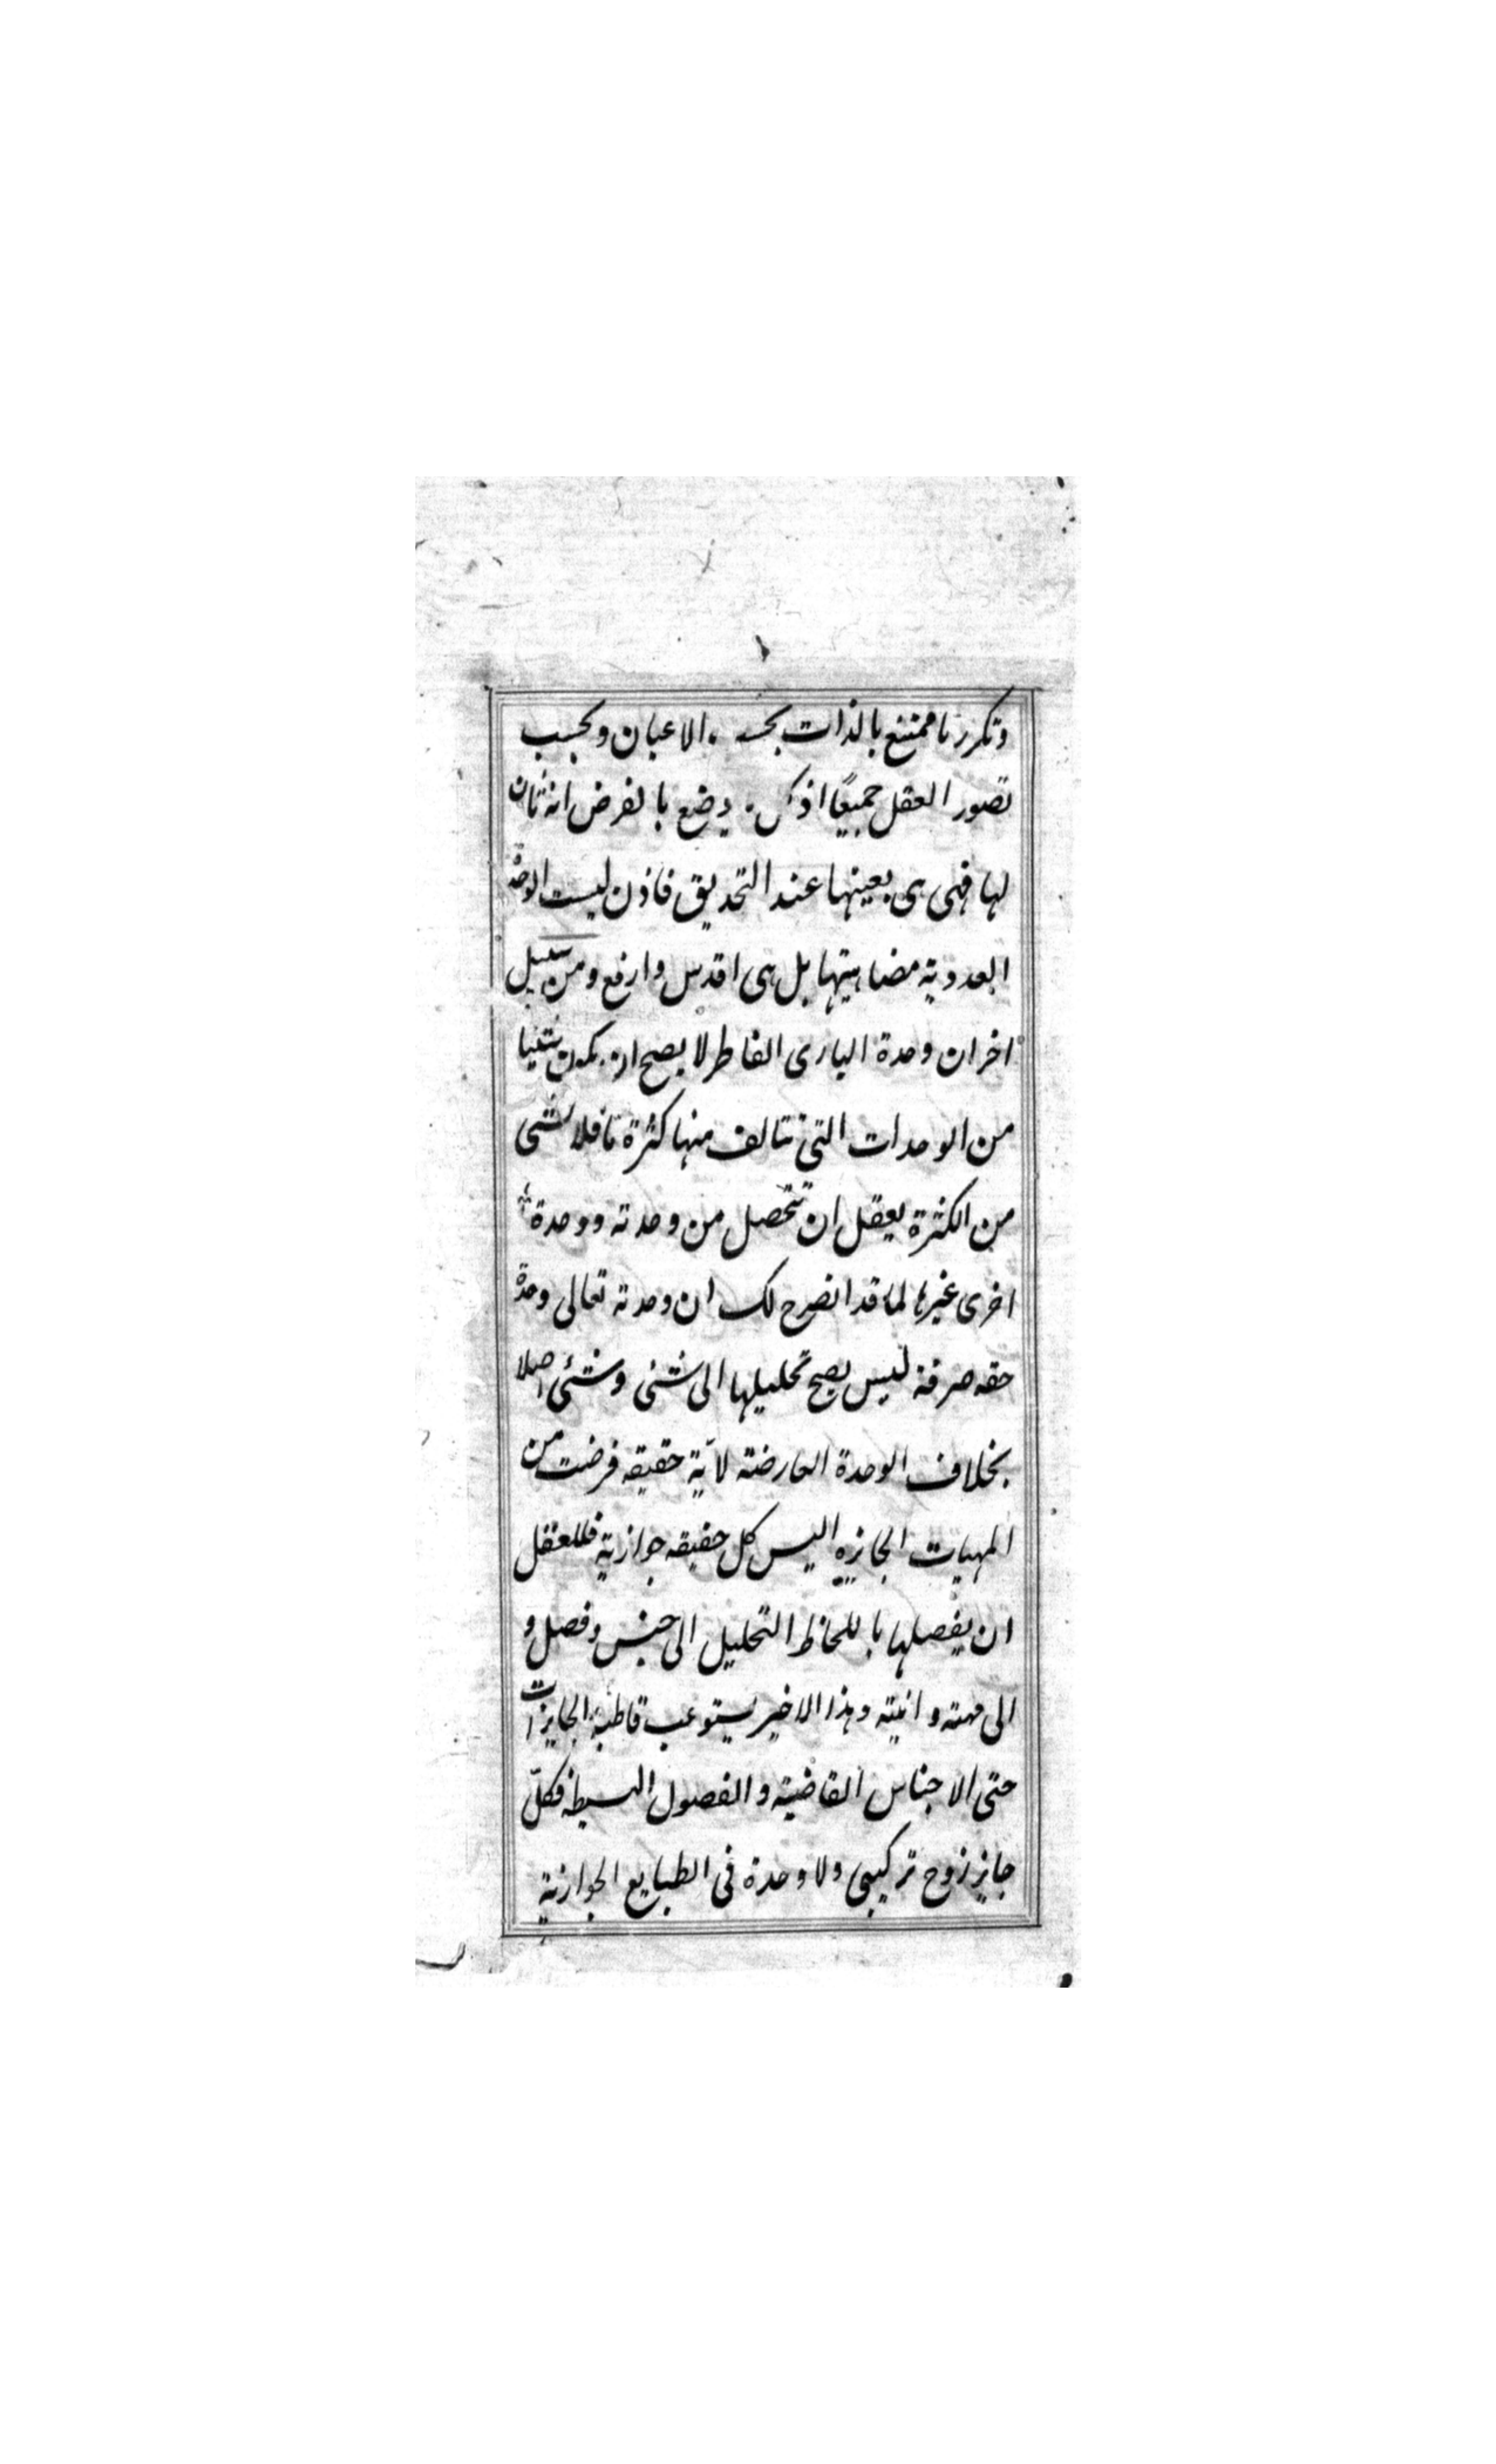 وتكررنا ممتنع بالذات بحسب الاعيان وبحسب
تصور العقل جميعًا اذ كل ما يضع بالفرض انه ثان
لها فهى هى بعينها عند التحديق فاذن ليست الوحدة
العددية مضاهيتها بل هى اقدس وارفع ومن سبيل
اخر ان وحدة البارى الفاطر لا يصح ان يكون
من الوحدات التى تتالف منها كثرة ما فلا شى
من الكثرة يعقل ان تتحصل من وحدته ووحدة
اخرى غيرها لما قد انصرح لك ان وحدته تعالى وحدة
حقه صرفة ليس يصح تحليلها الى شئى وشئى اصلا
بخلاف الوحدة العارضة لايّة حقيقه فرضت من
المهيات الجايزه اليس كل حقيقه جوازية فللعقل
ان يفصلها باللحاظ التحليل الى جنس وفصل و
الى مهية وانية وهذا الاخير يستوعب قاطبة الجايزات
حتى الاجناس القاصية والفصول البسيطه فكلّ
جايز زوج تركيبى ولا وحدة فى الطبايع الجوازية